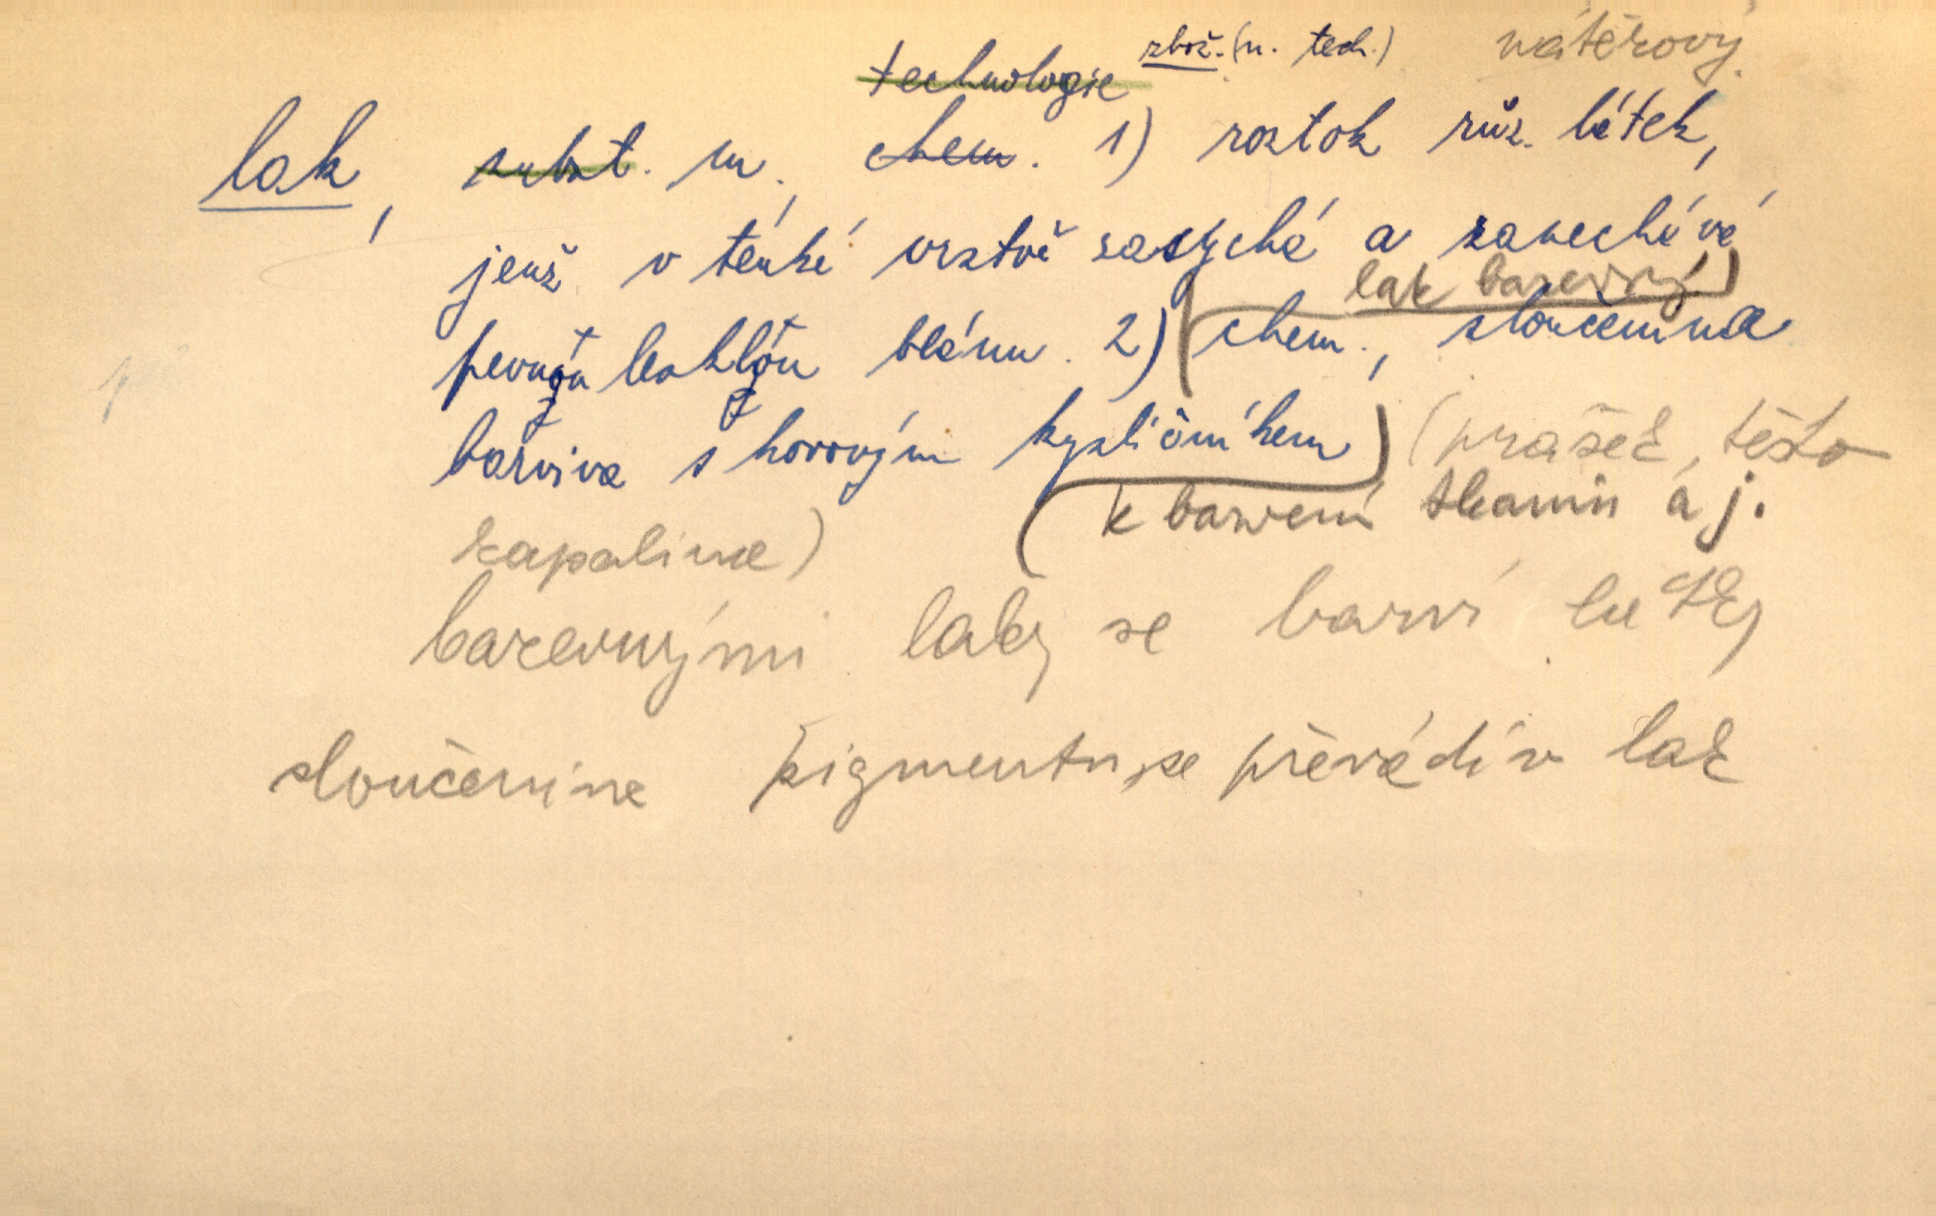 technologie zbož. (n. tech.) nátěrový
lak, subst. m., chem. 1) roztok růz. látek,
jenž v tenké vrstvě zasychá a zanechává
lak barevný
pevnou lesklou blánu. 2) chem., sloučenina
barviva s kovovým kysličníkem (prášek, těsto
k barvení tkanin a j.
kapalina)
barevnými laky se barví tu
sloučenina pigmentu se převádí v lak